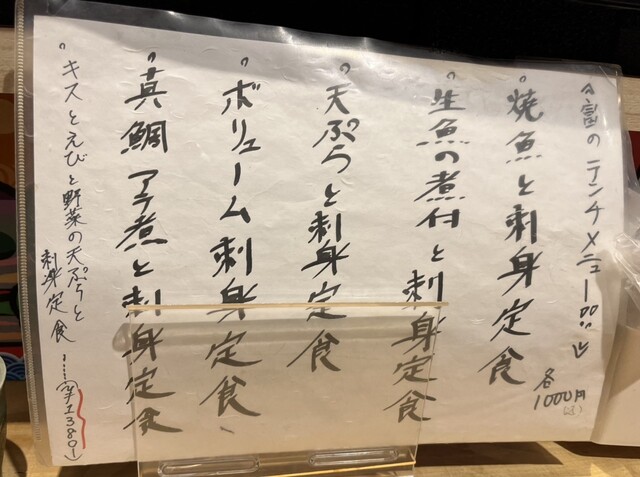 富のランチメニュー
焼魚と刺身定食
生魚の煮付と刺身定食
天ぷらと刺身定食
ボリューム刺身定食
真鯛アラ煮と刺身定食
各1000円
キスとえびと野菜の天ぷらと
刺身定食